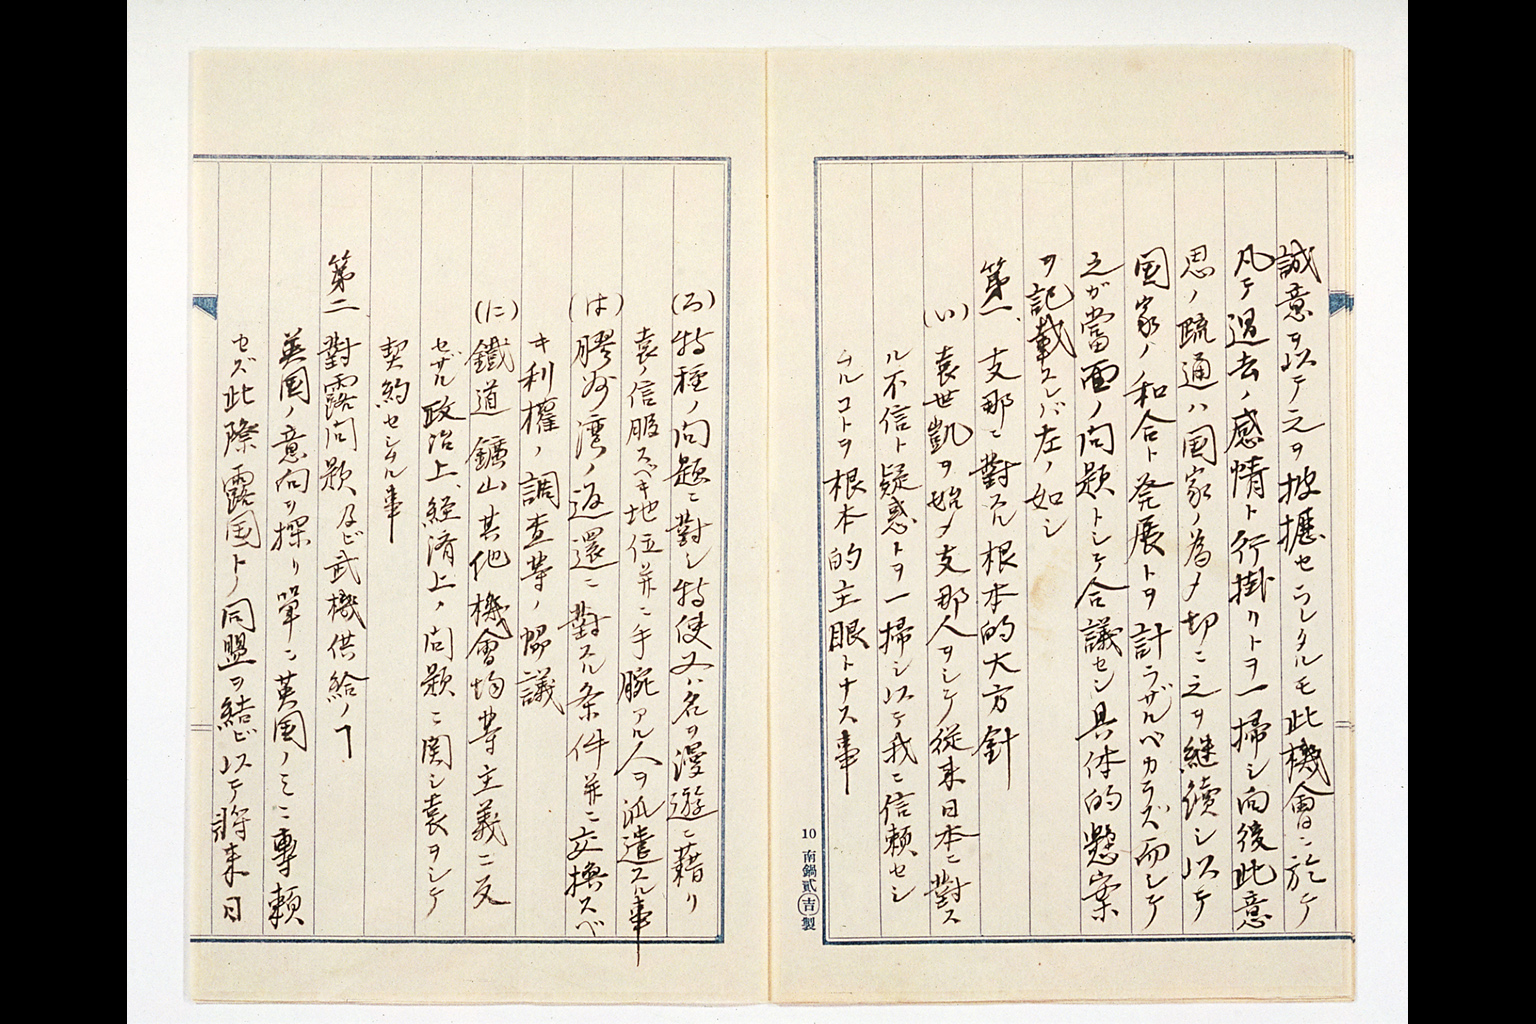 誠意ヲ以テ之ヲ披攊セラレタルモ此機會ニ於テ
凡テ過去ノ感情ト行掛リトヲ一掃シ向後此意
思ノ疏通ハ国家ノ為メ切ニ之ヲ継續シ以テ
国家ノ和合ト発展トヲ計ラザルベカラズ而シテ
之ガ當面ノ問題トシテ合議セシ具体的懸案
ヲ記載スレバ左ノ如シ
第一、支那ニ對スル根本的大方針
(い)袁世凱ヲ始メ支那人ヲシテ従来日本ニ對ス
ル不信ト疑惑トヲ一掃シ以テ我ニ信頼セシ
ムルコトヲ根本的主眼トナス事
10 南鍋貳吉製
(ろ)特種ノ問題ニ對シ特使又ハ名ヲ漫遊ニ藉リ
袁ノ信服スベキ地位并ニ手腕アル人ヲ派遣スル事
(は)膠州湾ノ返還ニ對スル条件并ニ交換スベ
キ利權ノ調査等ノ協議
(に)鐵道鑛山其他機會均等主義ニ反
セザル政治上、経済上ノ問題ニ関シ袁ヲシテ
契約セシムル事
第二 對露問題及ビ武機供給ノヿ
英国ノ意向ヲ探リ單ニ英国ノミニ專頼
セズ此際露国トノ同盟ヲ結ビ以テ将来日